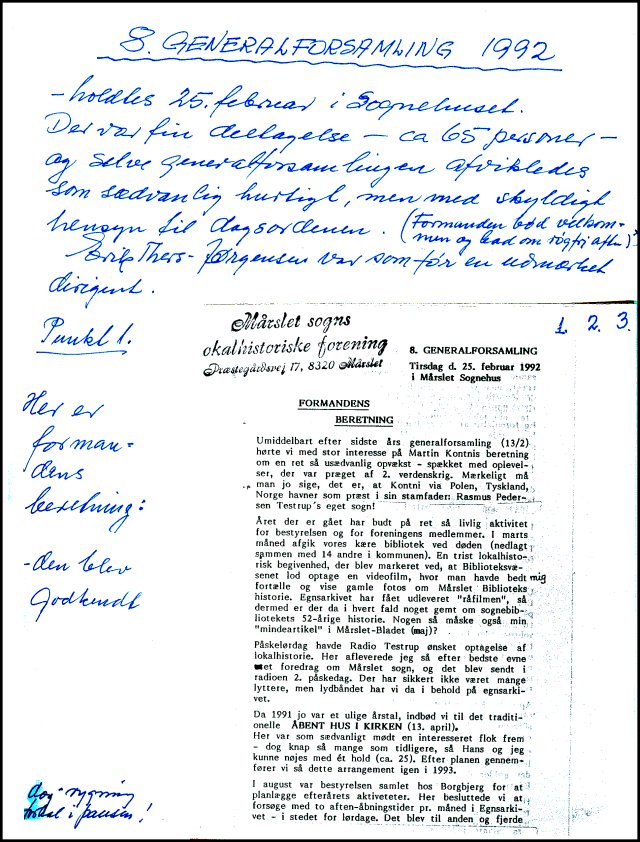 8. GENERALFORSAMLING 1992
- holdtes 25. februar i Sognehuset.
Der var fin deltagelse - ca 65 personer -
og selve generalforsamlingen afvikledes
som sædvanlig hurtigt, men med skyldigt
hensyn til dagsordenen. (Formanden bød velkom-
men og bad om røgfri aften)
Erik Thers-Jørgensen var som før en udmærket
dirigent.
Punkt 1.
1. 2. 3.
Mårslet sogns
okalhistoriske forening
Præstegårdsvej 17, 8320 Mårslet
8. GENERALFORSAMLING
Tirsdag d. 25. februar 1992
i Mårslet Sognehus
Her er
forman-
dens
beretning:
- den blev
Godkendt
FORMANDENS
BERETNING
Umiddelbart efter sidste års generalforsamling (13/2)
hørte vi med stor interesse på Martin Kontnis beretning
om en ret så usædvanlig opvækst - spækket med oplevel-
ser, der var præget af 2. verdenskrig. Mærkeligt må
man jo sige, det er, at Kontni via Polen, Tyskland,
Norge havner som præst i sin stamfader: Rasmus Peder-
sen Testrup's eget sogn!
Året der er gået har budt på ret så livlig aktivitet
for bestyrelsen og for foreningens medlemmer. I marts
måned afgik vores kære bibliotek ved døden (nedlagt
sammen med 14 andre i kommunen). En trist lokalhisto-
risk begivenhed, der blev markeret ved, at Biblioteksvæ-
senet lod optage en videofilm, hvor man havde bedt mig
fortælle og vise gamle fotos om Mårslet Biblioteks
historie. Egnsarkivet har fået udleveret "råfilmen", så
dermed er der da i hvert fald noget gemt om sognebib-
liotekets 52-årige historie. Nogen så måske også min
"mindeartikel" i Mårslet-Bladet (maj)?
Påskelørdag havde Radio Testrup ønsket optagelse af
lokalhistorie. Her afleverede jeg så efter bedste evne
et foredrag om Mårslet sogn, og det blev sendt i
radioen 2. påskedag. Der har sikkert ikke været mange
lyttere, men lydbåndet har vi da i behold på egnsarki-
vet.
Da 1991 jo var et ulige årstal, indbød vi til det traditi-
onelle ÅBENT HUS I KIRKEN (13. april).
Her var som sædvanligt mødt en interesseret flok frem
- dog knap så mange som tidligere, så Hans og jeg
kunne nøjes med ét hold (ca. 25). Efter planen gennem-
fører vi så dette arrangement igen i 1993.
I august var bestyrelsen samlet hos Borgbjerg for at
planlægge efterårets aktiviteter. Her besluttede vi at
forsøge med to aften-åbningstider pr. måned i Egnsar-
kivet - i stedet for lørdage. Det blev til anden og fjerde
dog: rygning
tilladt i pausen!